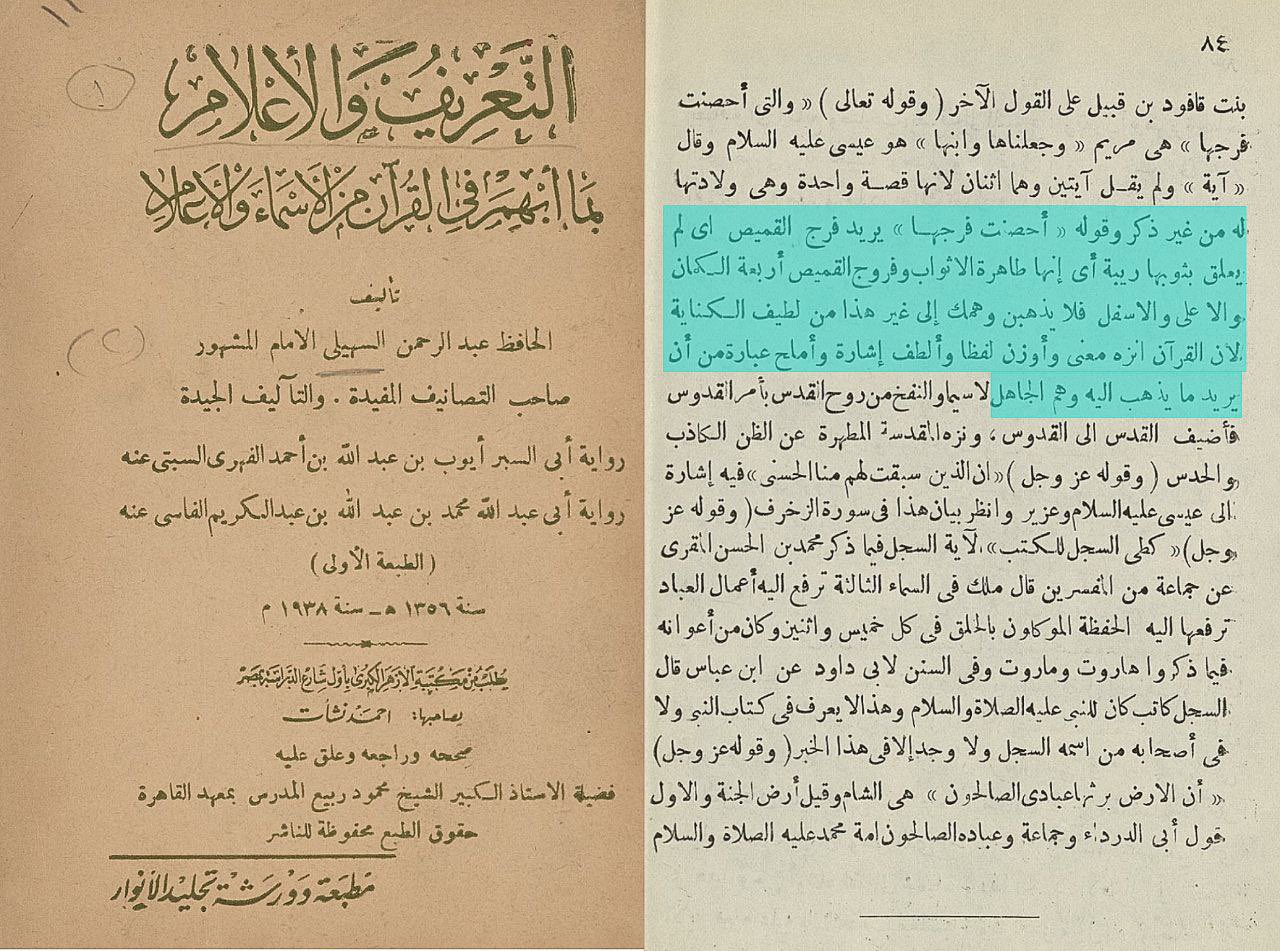 التَّعْرِيفُ وَالْأَعْلَامِ
١
بِمَا أُبْهِمَ فِي الْقُرْآنِ مِنَ الْأَسْمَاءِ وَالْأَعْلَامِ
تأليف
الحافظ عبد الرحمن السهيلى الامام المشهور
صاحب التصانيف المفيدة . والتآليف الجيدة
رواية أبى السبر أيوب بن عبد الله بن أحمد الفهرى السبتى عنه
رواية أبى عبد الله محمد بن عبد الله بن عبد الكريم الفاسى عنه
( الطبعة الأولى )
سنة ١٣٥٦ هـ - سنة ١٩٣٨ م
يُطلب من مكتبة الأزهر الكبرى بأول شارع الدراسة بمصر
لصاحبها: احمد نشأت
صححه وراجعه وعلق عليه
فضيلة الاستاذ الكبير الشيخ محمود ربيع المدرس بمعهد القاهرة
حقوق الطبع محفوظة للناشر
مطبعة وورشة تجليد الأنوار
٨٤
بنت قافود بن قبيل على القول الآخر ( وقوله تعالى ) « والتى أحصنت
فرجها » هى مريم « وجعلناها وابنها » هو عيسى عليه السلام وقال
« آية » ولم يقل آيتين وهما اثنان لانها قصة واحدة وهى ولادتها
له من غير ذكر وقوله « أحصنت فرجها » يريد فرج القميص اى لم
يعلق بثوبها ريبة أى إنها طاهرة الاثواب وفروج القميص أربعة الكمان
والا على والاسفل فلا يذهبن وهمك إلى غير هذا من لطيف الكناية
لان القرآن انزه معنى وأوزن لفظا وألطف إشارة وأملح عبارة من أن
يريد ما يذهب اليه وهم الجاهل لا سيما والنفخ من روح القدس بأمر القدوس
فأضيف القدس الى القدوس ، ونزه المقدسة المطهرة عن الظن الكاذب
والحدس ( وقوله عز وجل ) « ان الذين سبقت لهم منا الحسنى » فيه إشارة
الى عيسى عليه السلام وعزير وانظر بيان هذا فى سورة الزخرف ( وقوله عز
وجل ) « كطى السجل للكتب » الآية السجل فيما ذكر محمد بن الحسن المقرى
عن جماعة من المفسرين قال ملك فى السماء الثالثة ترفع اليه أعمال العباد
ترفعها اليه الحفظة الموكلون بالخلق فى كل خميس واثنين وكان من أعوانه
فيما ذكروا هاروت وماروت وفى السنن لابى داود عن ابن عباس قال
السجل كاتب كان للنبى عليه الصلاة والسلام وهذا لا يعرف فى كتاب النبى ولا
فى أصحابه من اسمه السجل ولا وجد إلا فى هذا الخبر ( وقوله عز وجل )
« أن الارض يرثها عبادى الصالحون » هى الشام وقيل أرض الجنة والاول
قول أبى الدرداء وجماعة وعباده الصالحون امة محمد عليه الصلاة والسلام